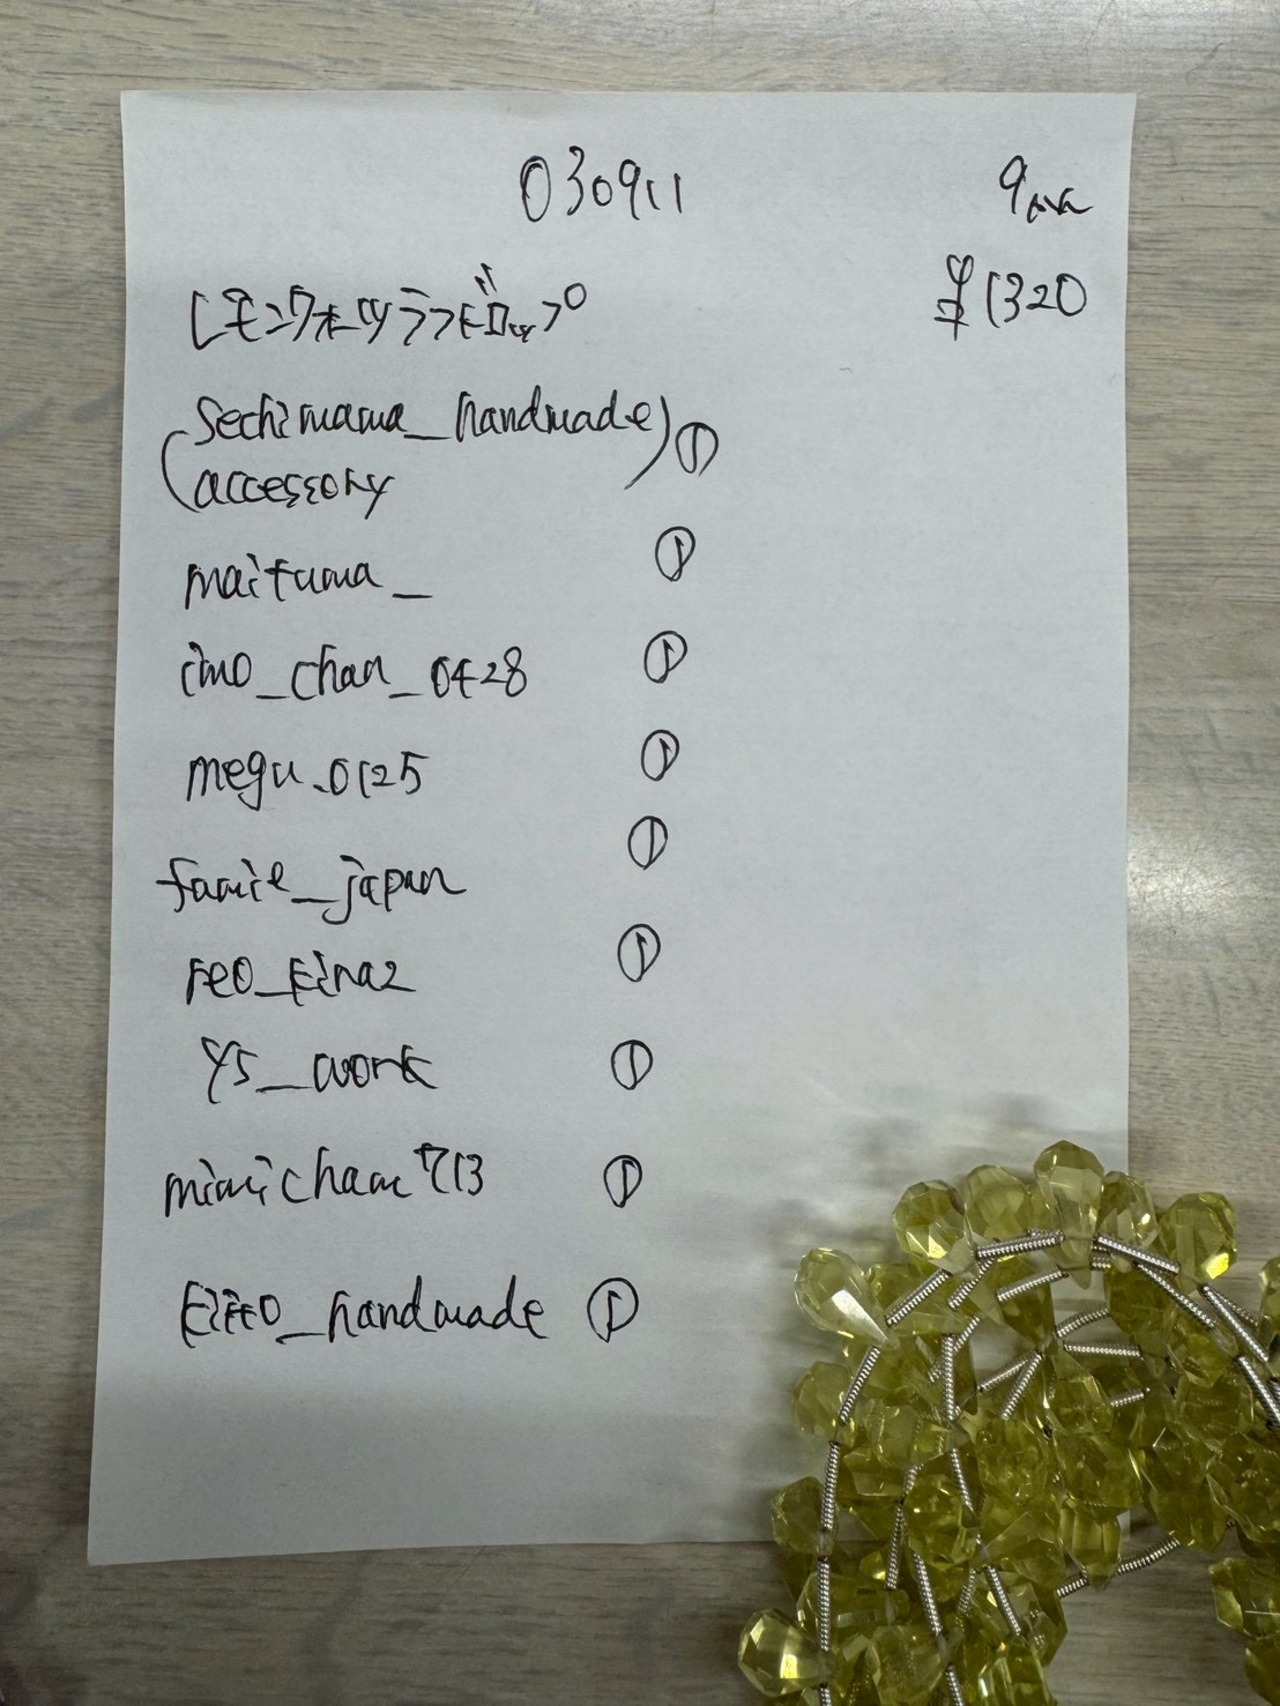 030911
9mm
¥1320
レモンクォーツラフドロップ
sechimama_handmade
accessory ①
maituma_ ①
imo_chan_0428 ①
megu.0125 ①
famie_japan ①
reo_kina2 ①
ys_work ①
mimicham713 ①
_handmade ①